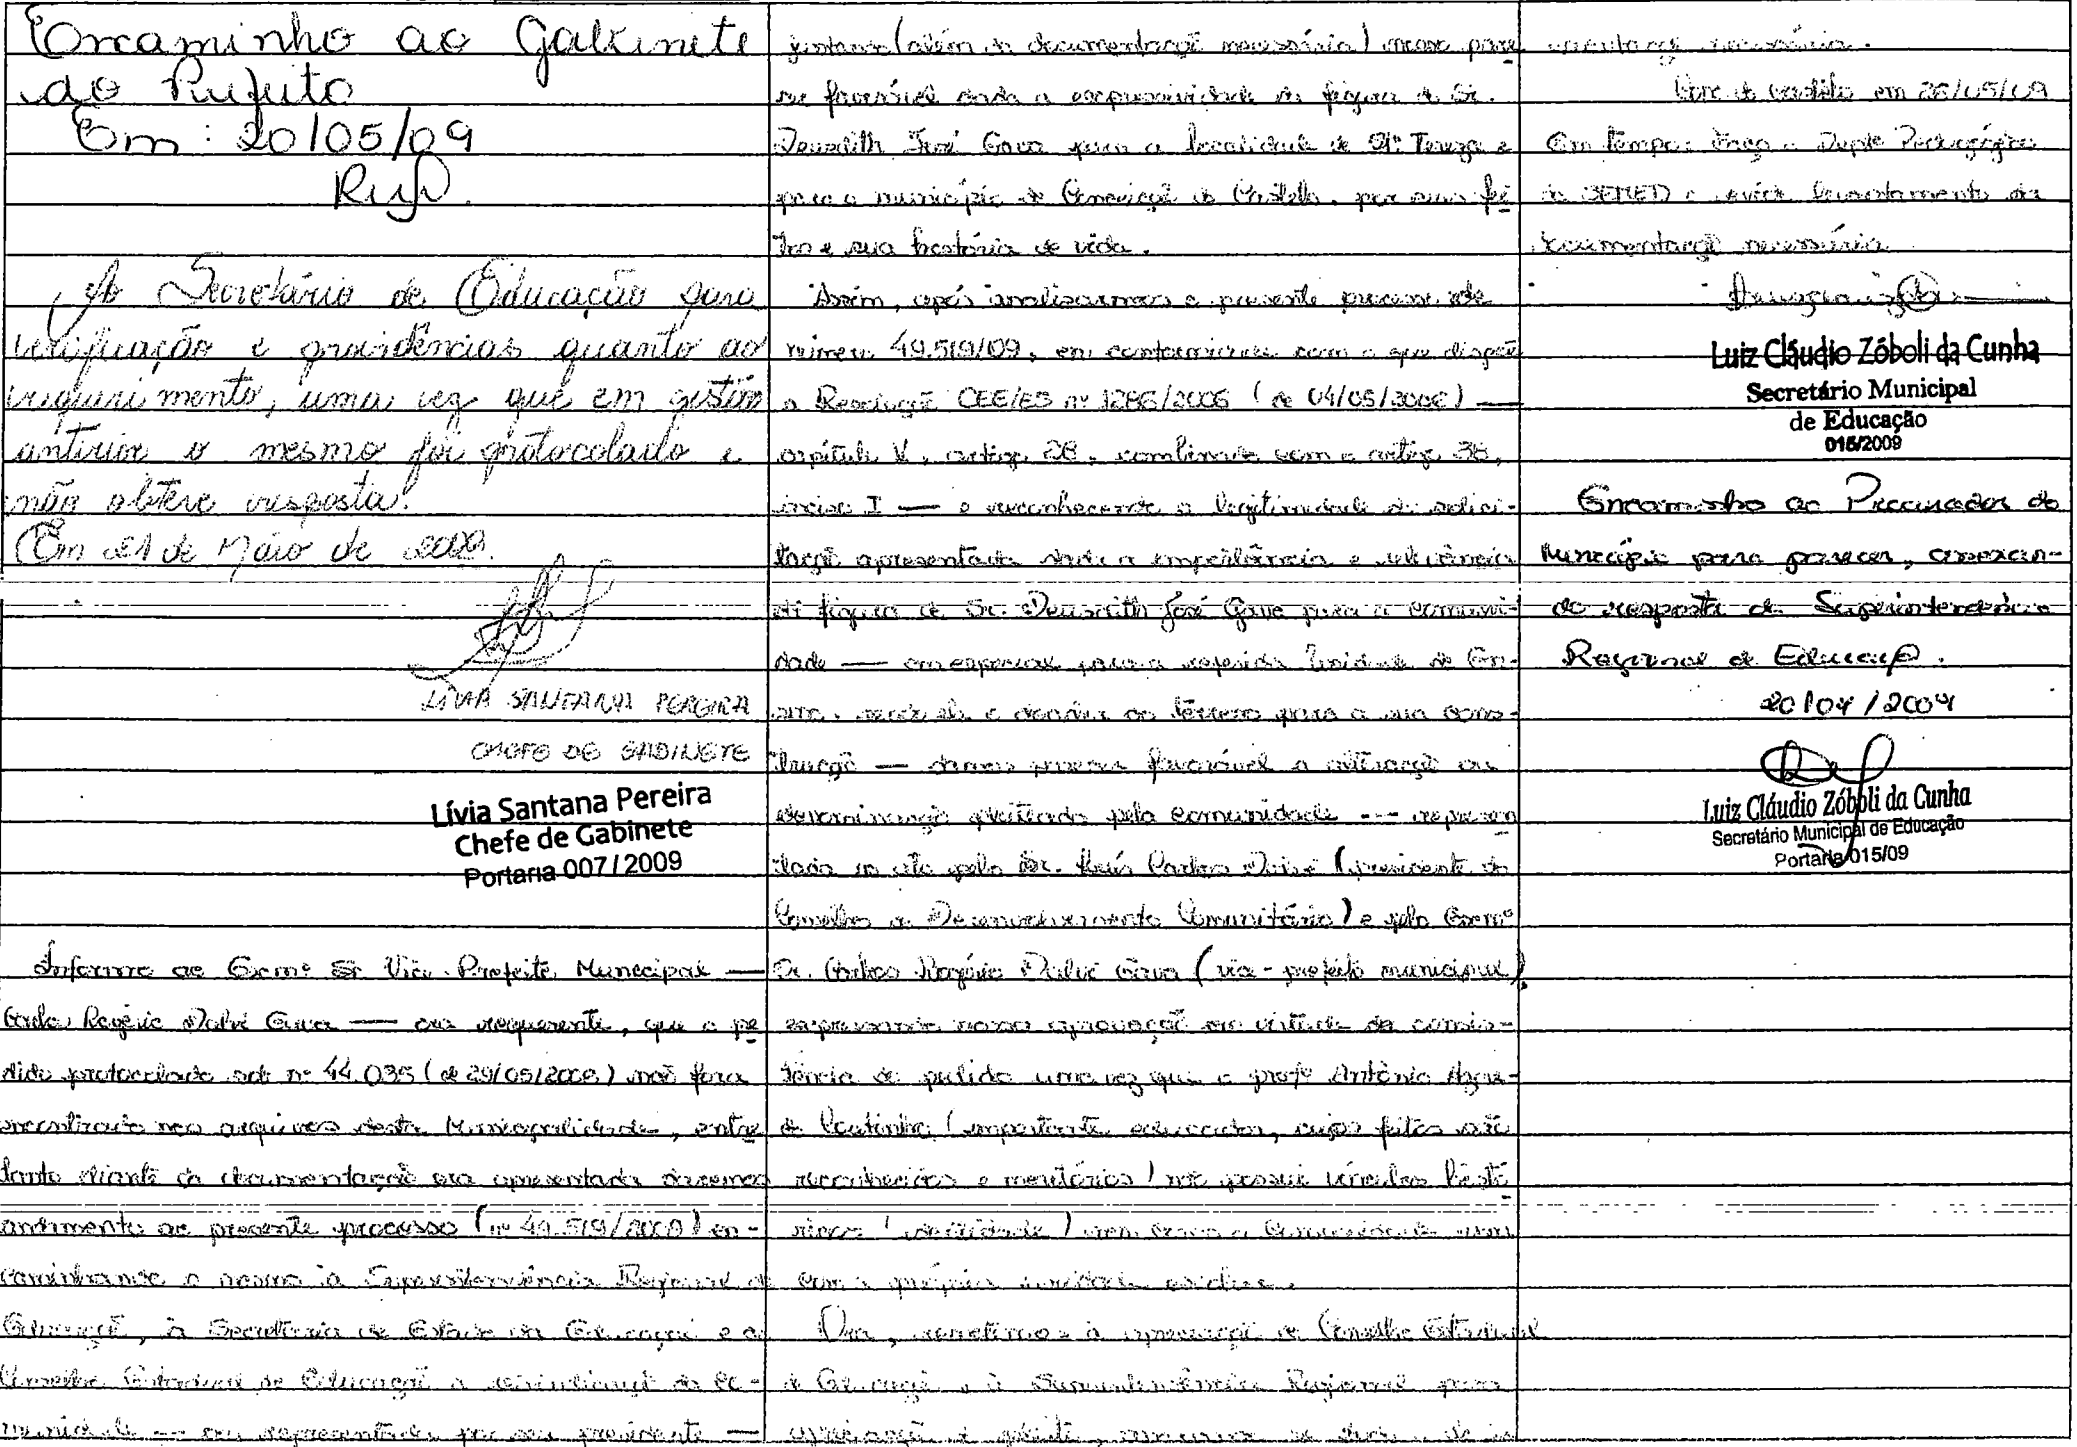 Encaminho ao Gabinete
do Prefeito
Em: 20/05/09
Ao Secretário de Educação para
verificação e providências quanto ao
requerimento, uma vez que em gestão
anterior o mesmo foi protocolado e
não obteve resposta.
Em 21 de Maio de 2009.
LÍVIA SANTANA PEREIRA
CHEFE DE GABINETE
Lívia Santana Pereira
Chefe de Gabinete
Portaria 007/2009
Informo ao Exmº Sr Vice-Prefeito Municipal —
Carlos Rogério Dalvi Gava — ora requerente, que o pe
dido protocolado sob nº 44.035 (de 29/05/2008) não fora
encontrado nos arquivos desta Municipalidade, entre
tanto diante da documentação ora apresentada daremos
andimento ao presente processo (nº 49.519/2009) en-
caminhando o mesmo à Superintendência Regional de
Educação, à Secretaria de Estado da Educação e ao
Conselho Estadual de Educação a reivindicação da co-
munidade — ora representada por seu presidente —
juntando (além da documentação necessária) nosso pare
cer favorável dada a expressividade da figura do Sr.
Deusdith José Gava para a localidade de Stª Tereza e
para o município de Conceição do Castelo, por seus fei
tos e sua história de vida.
Assim, após analisarmos o presente processo sob
número 49.519/09, em conformidade com o que dispõe
a Resolução CEE/ES nº 1286/2006 (de 04/05/2006) —
capítulo V, artigo 28, combinado com o artigo 38,
inciso I — e reconhecendo a legitimidade da solici-
tação apresentada dada a importância e relevância
da figura do Sr. Deusdith José Gava para a comuni-
dade — em especial para a referida Unidade de En-
sino, sendo ele o doador do terreno para a sua cons-
trução — damos parecer favorável a alteração da
denominação pleiteada pela comunidade — represen
tada no ato pelo Sr. Luís Carlos Dalvi (presidente do
Conselho de Desenvolvimento Comunitário) e pelo Exmº
Sr. Carlos Rogério Dalvi Gava (vice-prefeito municipal),
expressando nossa aprovação em virtude da consis-
tência do pedido uma vez que o profº Antônio
Coutinho (importante educador, cujos feitos são
reconhecidos e meritórios) não possui vínculos histó
ricos (identidade) nem com a Comunidade nem
com a própria unidade escolar.
Ora, remetemos à apreciação do Conselho Estadual
de Educação, e à Superintendência Regional para
apreciação
necessária.
Conc. do Castelo em 28/05/09
Em tempo: Peço o Depto Pedagógico
da SEMED o devido levantamento da
documentação necessária
Luiz Cláudio Zóboli da Cunha
Secretário Municipal
de Educação
015/2009
Encaminho ao Procurador do
Município para parecer, anexan-
do resposta da Superintendência
Regional de Educação.
20/07/2009
Luiz Cláudio Zóboli da Cunha
Secretário Municipal de Educação
Portaria 015/09